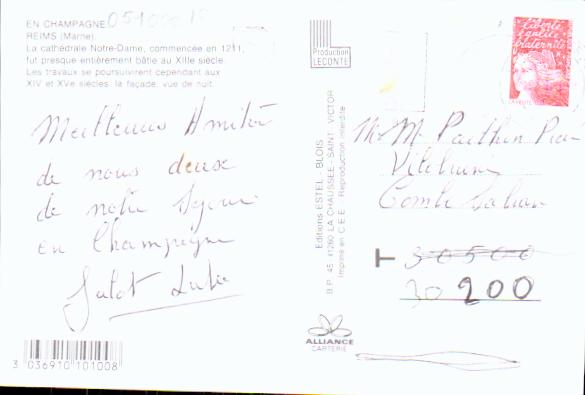 EN CHAMPAGNE
REIMS (Marne).
La cathédrale Notre-Dame, commencée en 1211,
fut presque entièrement bâtie au XIIIe siècle.
Les travaux se poursuivirent cependant aux
XIV et XVe siècles: la façade, vue de nuit.
Meilleures Amitiés
de nous deux
de notre Séjour
en Champagne
3 036910 101008
Production
LECONTE
Editions ESTEL - BLOIS
B.P. 45 41260 LA CHAUSSEE-SAINT-VICTOR
Imprimé en C.E.E. Reproduction interdite
ALLIANCE
CARTERIE
liberté
égalité
fraternité
LA POSTE
T 30500
30 200